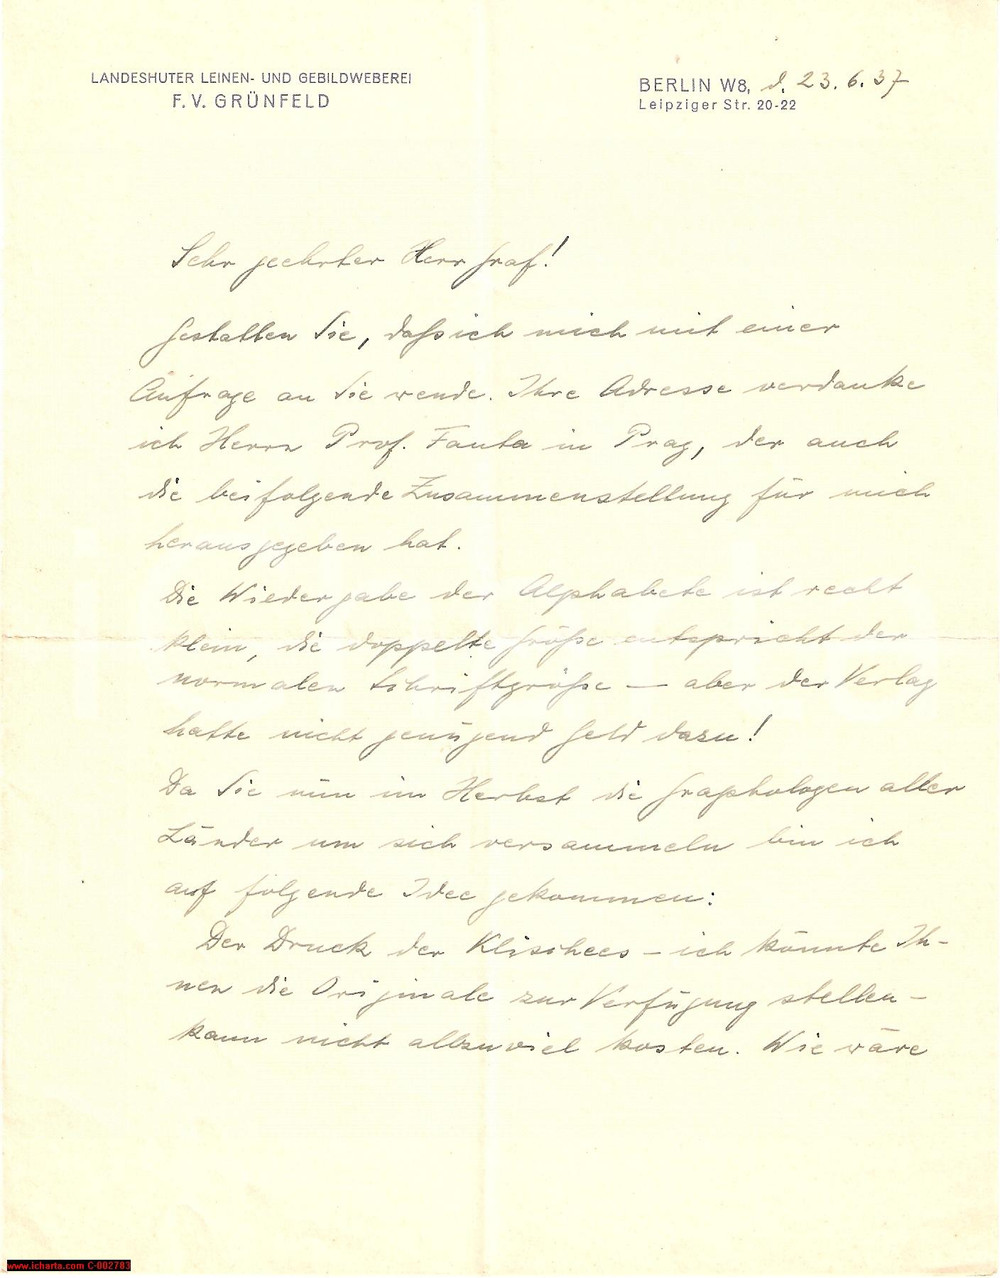 LANDESHUTER LEINEN- UND GEBILDWEBEREI
F. V. GRÜNFELD
BERLIN W8, d. 23.6.37
Leipziger Str. 20-22
Sehr geehrter Herr Graf!
Gestatten Sie, daß ich mich mit einer
Anfrage an Sie wende. Ihre Adresse verdanke
ich Herrn Prof. Fanta in Prag, der auch
die beifolgende Zusammenstellung für mich
herausgegeben hat.
Die Wiedergabe der Alphabete ist recht
klein, die doppelte Größe entspricht der
normalen Schriftgröße — aber der Verlag
hatte nicht genügend Geld dazu!
Da Sie nun im Herbst die Graphologen aller
Länder um sich versammeln bin ich
auf folgende Idee gekommen:
Der Druck der Klischees — ich könnte Ih-
nen die Originale zur Verfügung stellen —
kann nicht allzuviel kosten. Wie wäre
www.icharta.com C-002783